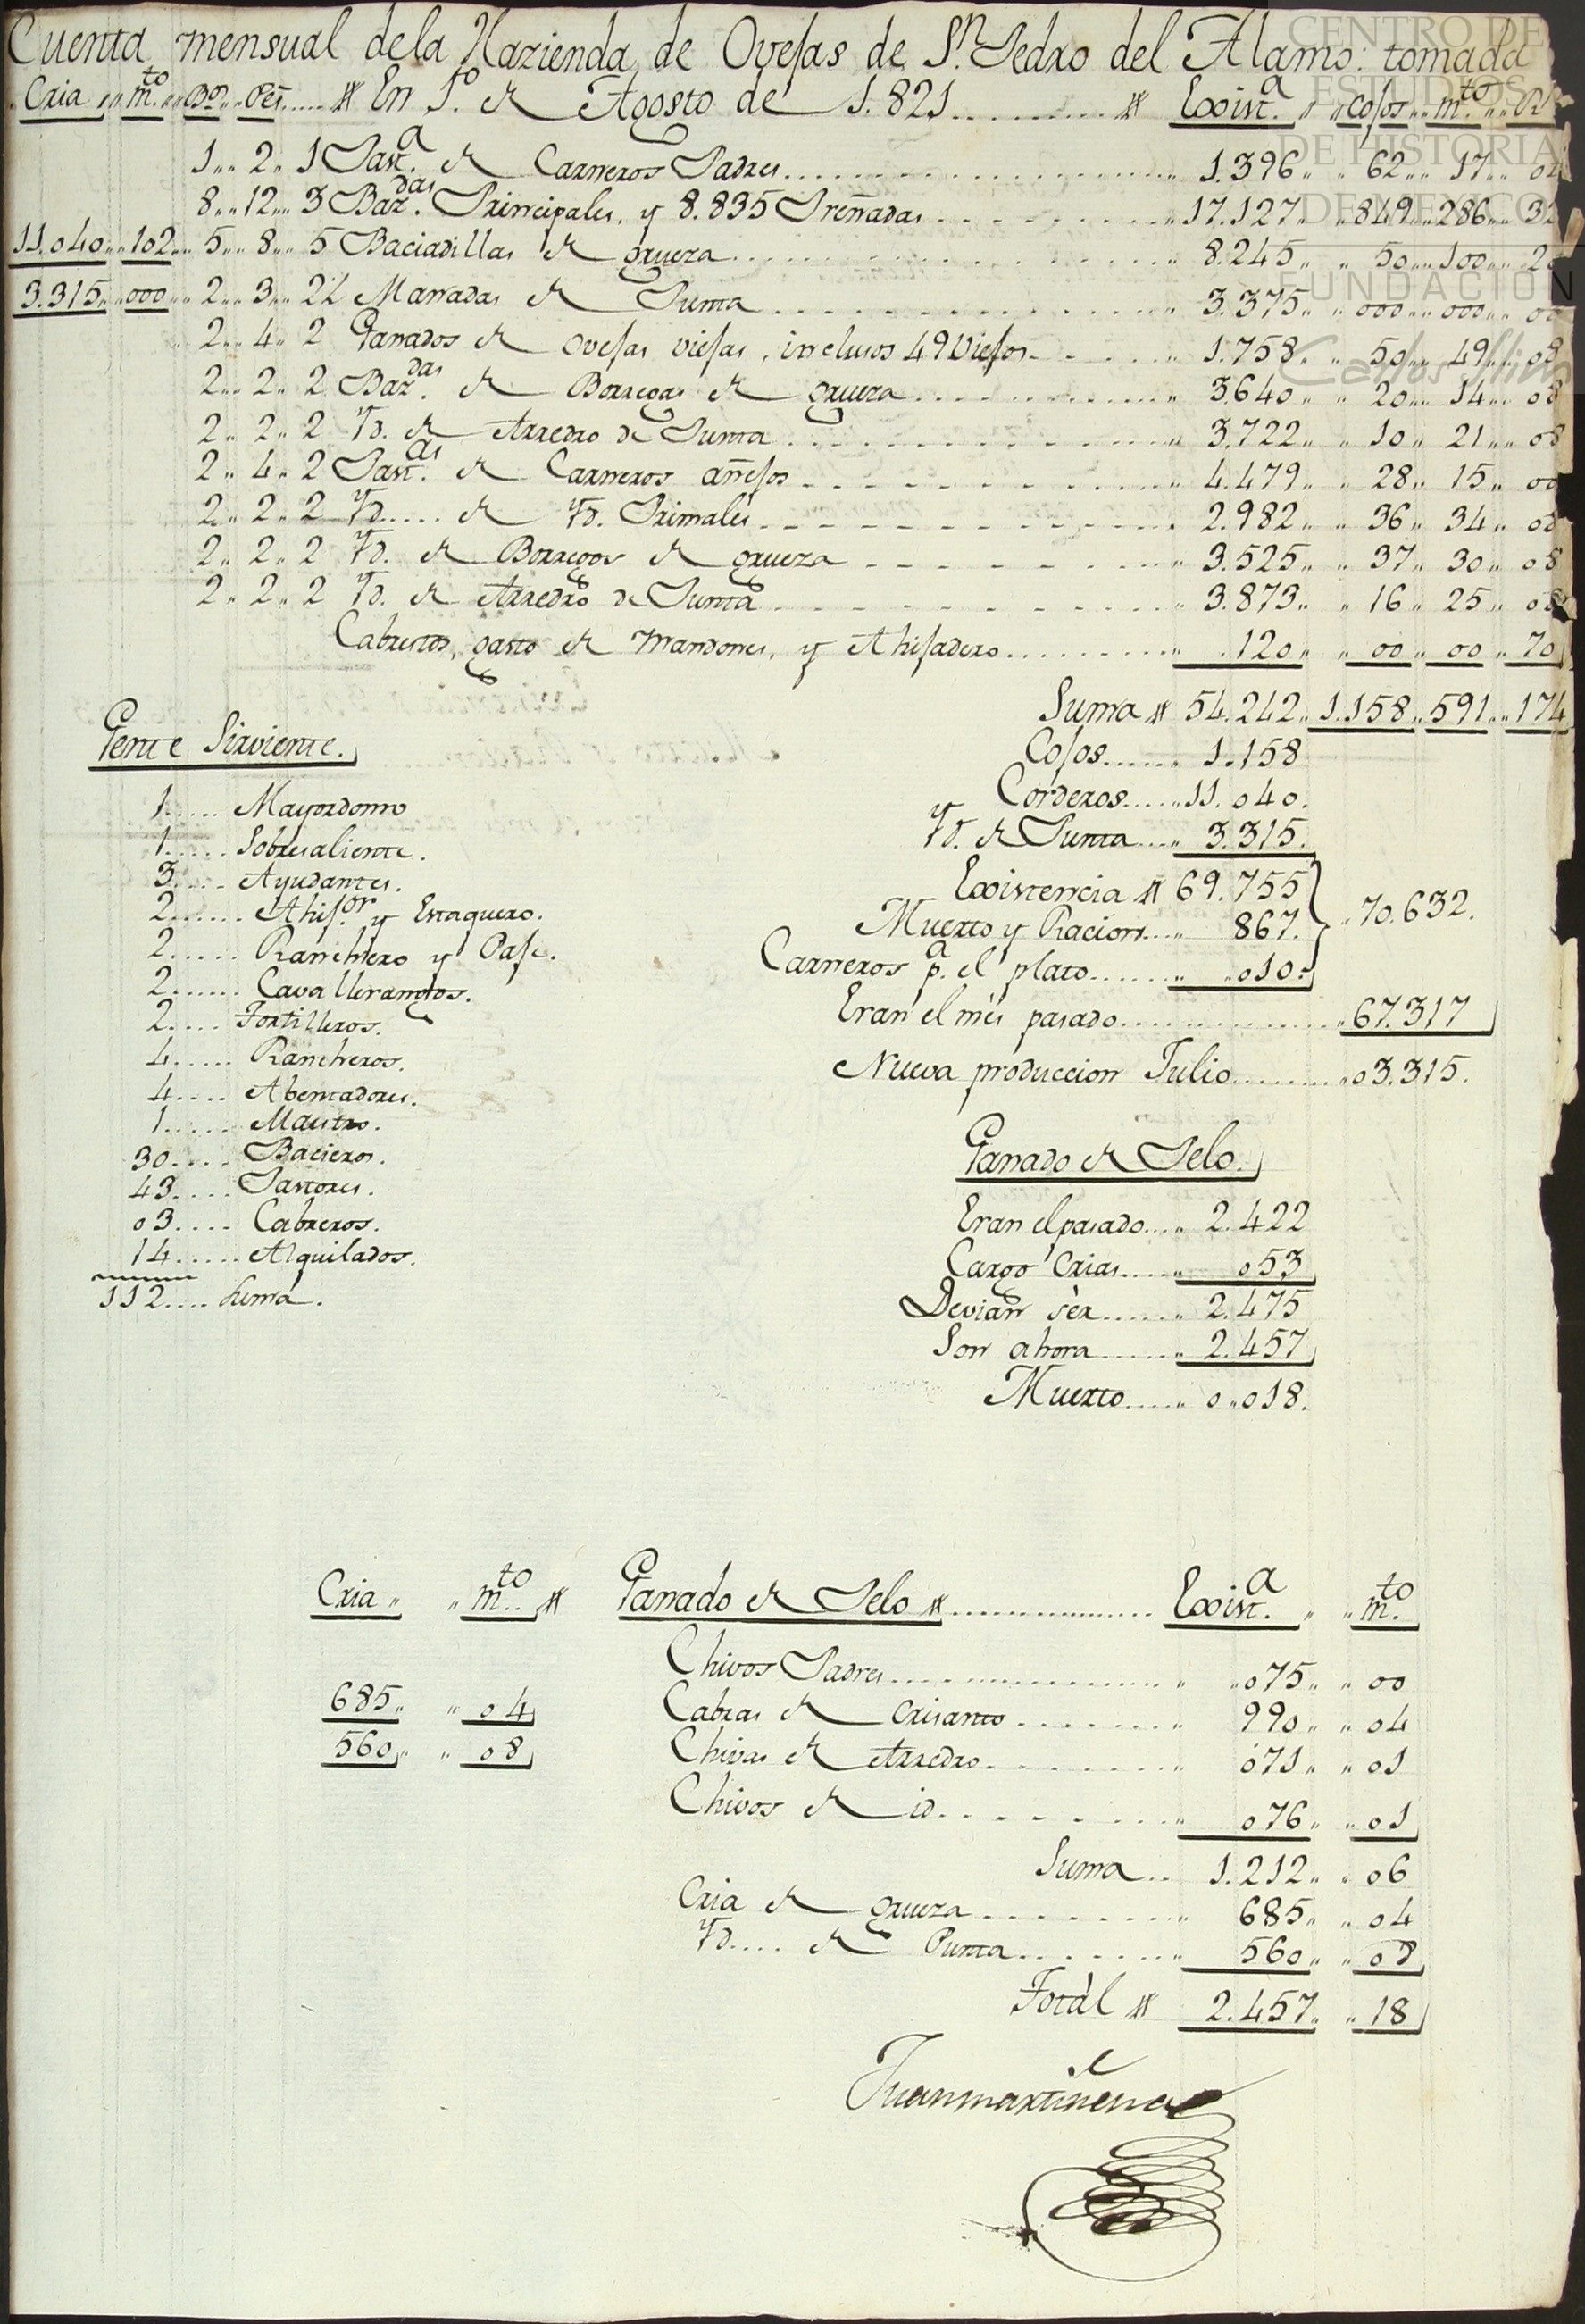 Cuenta mensual dela Hazienda de Ovejas de Sn. Pedro del Alamo: tomada
Cria " " mto. " " Bos. " " Pes. En 1o. de Agosto de 1.821 Exista. " " cojos " " mto. " "
1 " " 2 " 1 Past.a de Carneros Padres 1.396 " " 62 " " 17 " "
8 " " 12 " " 3 Bazdas. Principales, y 8.835 Preñadas 17.127 " " 849 " " 286 " " 32
11.040 " " 102 " " 5 " " 8 " " 5 Baciadillas de grueza 8.245 " " 50 " " 100 " "
3.315 " " 000 " " 2 " " 3 " " 22 Manadas de Punta 3.375 " " 000 " " 000 " " 00
2 " " 4 " 2 Ganados de ovejas viejas, inclusos 49 Viejos 1.758 " " 50 " " 49 " " 08
2 " " 2 " 2 Bazdas. de Borregas de grueza 3.640 " " 20 " " 14 " " 08
2 " 2 " 2 Yd. de Arredro de Punta 3.722 " " 10 " 21 " " 08
2 " 4 " 2 Pastas. de Carneros añejos 4.479 " " 28 " 15 " 00
2 " 2 " 2 Yd. de Yd. Primales 2.982 " " 36 " 34 "
2 " 2 " 2 Yd. de Borregos de grueza 3.525 " " 37 " 30 " 08
2 " 2 " 2 Yd. de Arredro de Punta 3.873 " " 16 " 25 "
Cabestros, gasto de Mandones, y Ahijadero 120 " " 00 " 00 " 70
Suma 54.242 " 1.158 " 591 " " 174
Gente Sirviente.
Cojos 1.158
1 Mayordomo
Corderos 11.040.
1 Sobresaliente.
Yd. de Punta 3.315.
3 Ayudantes.
Existencia 69.755
2 Ahijor. y Estaquero.
Muerto y Racion 867. 70.632.
2 Ranchero y Paje.
Carneros pa. el plato 010.
2 Cavallerangos.
Eran el més pasado 67.317
2 Tortilleros.
4 Rancheros.
Nueva produccion Julio 03.315.
4 Abentadores.
1 Maestro.
30 Bacieros.
Ganado de Pelo.
43 Pastores.
03 Cabreros.
Eran el pasado 2.422
14 Alquilados.
Cargo Crias 053
112 Suma.
Devian sér 2.475
Son ahora 2.457
Muerto 0 " 018.
Cria " " mto. Ganado de Pelo Exista. " " mto.
Chivos Padres 075 " " 00
685 " " 04 Cabras de Crisanto 990 " " 04
560 " " 08 Chivas de Arredro 071 " " 01
Chivos de id. 076 " " 01
Suma 1.212 " " 06
Cria de grueza 685 " " 04
Yd. de Punta 560 " " 08
Totál 2.457 " " 18
CENTRO DE
ESTUDIOS
DE HISTORIA
DE MEXICO
FUNDACION
Carlos Slim